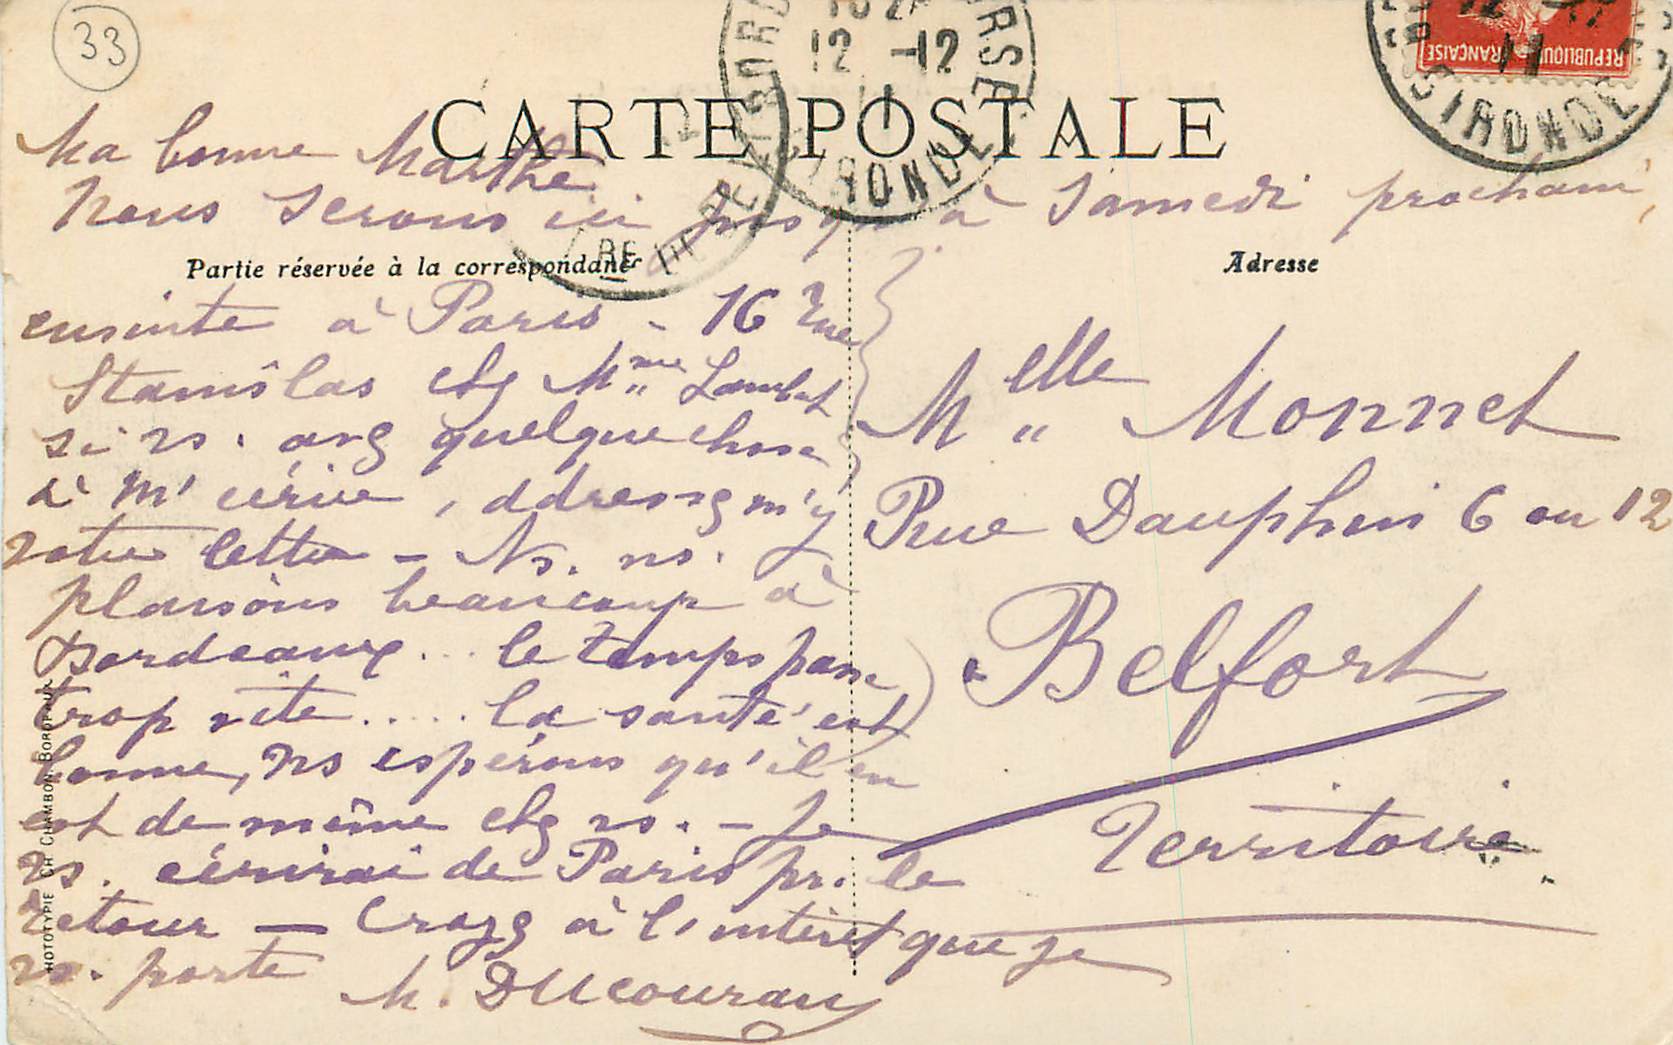 33
CARTE POSTALE
Ma bonne Marthe
Nous serons ici jusqu' à Samedi prochain,
Partie réservée à la correspondance
Adresse
ensuite à Paris - 16 rue
Stanislas chz Mme Lambert
si vs. avz quelque chose
à m' écrire, addressz m'y
votre lettre - Ns. ns.
plaisons beaucoup à
Bordeaux... le temps passe
trop vite..... la santé est
bonne, ns espérons qu'il en
est de même chz vs. - Je
vs. écrirai de Paris pr. le
retour - Croyz à l'intérêt que je
vs. porte
M. Ducourau
Melle Monnet
Rue Dauphin 6 ou 12
Belfort
Territoire
HOTOTYPIE CH. CHAMBON BORDEAUX
REPUBLIQUE FRANCAISE
12 -12
GIRONDE
GIRONDE
11